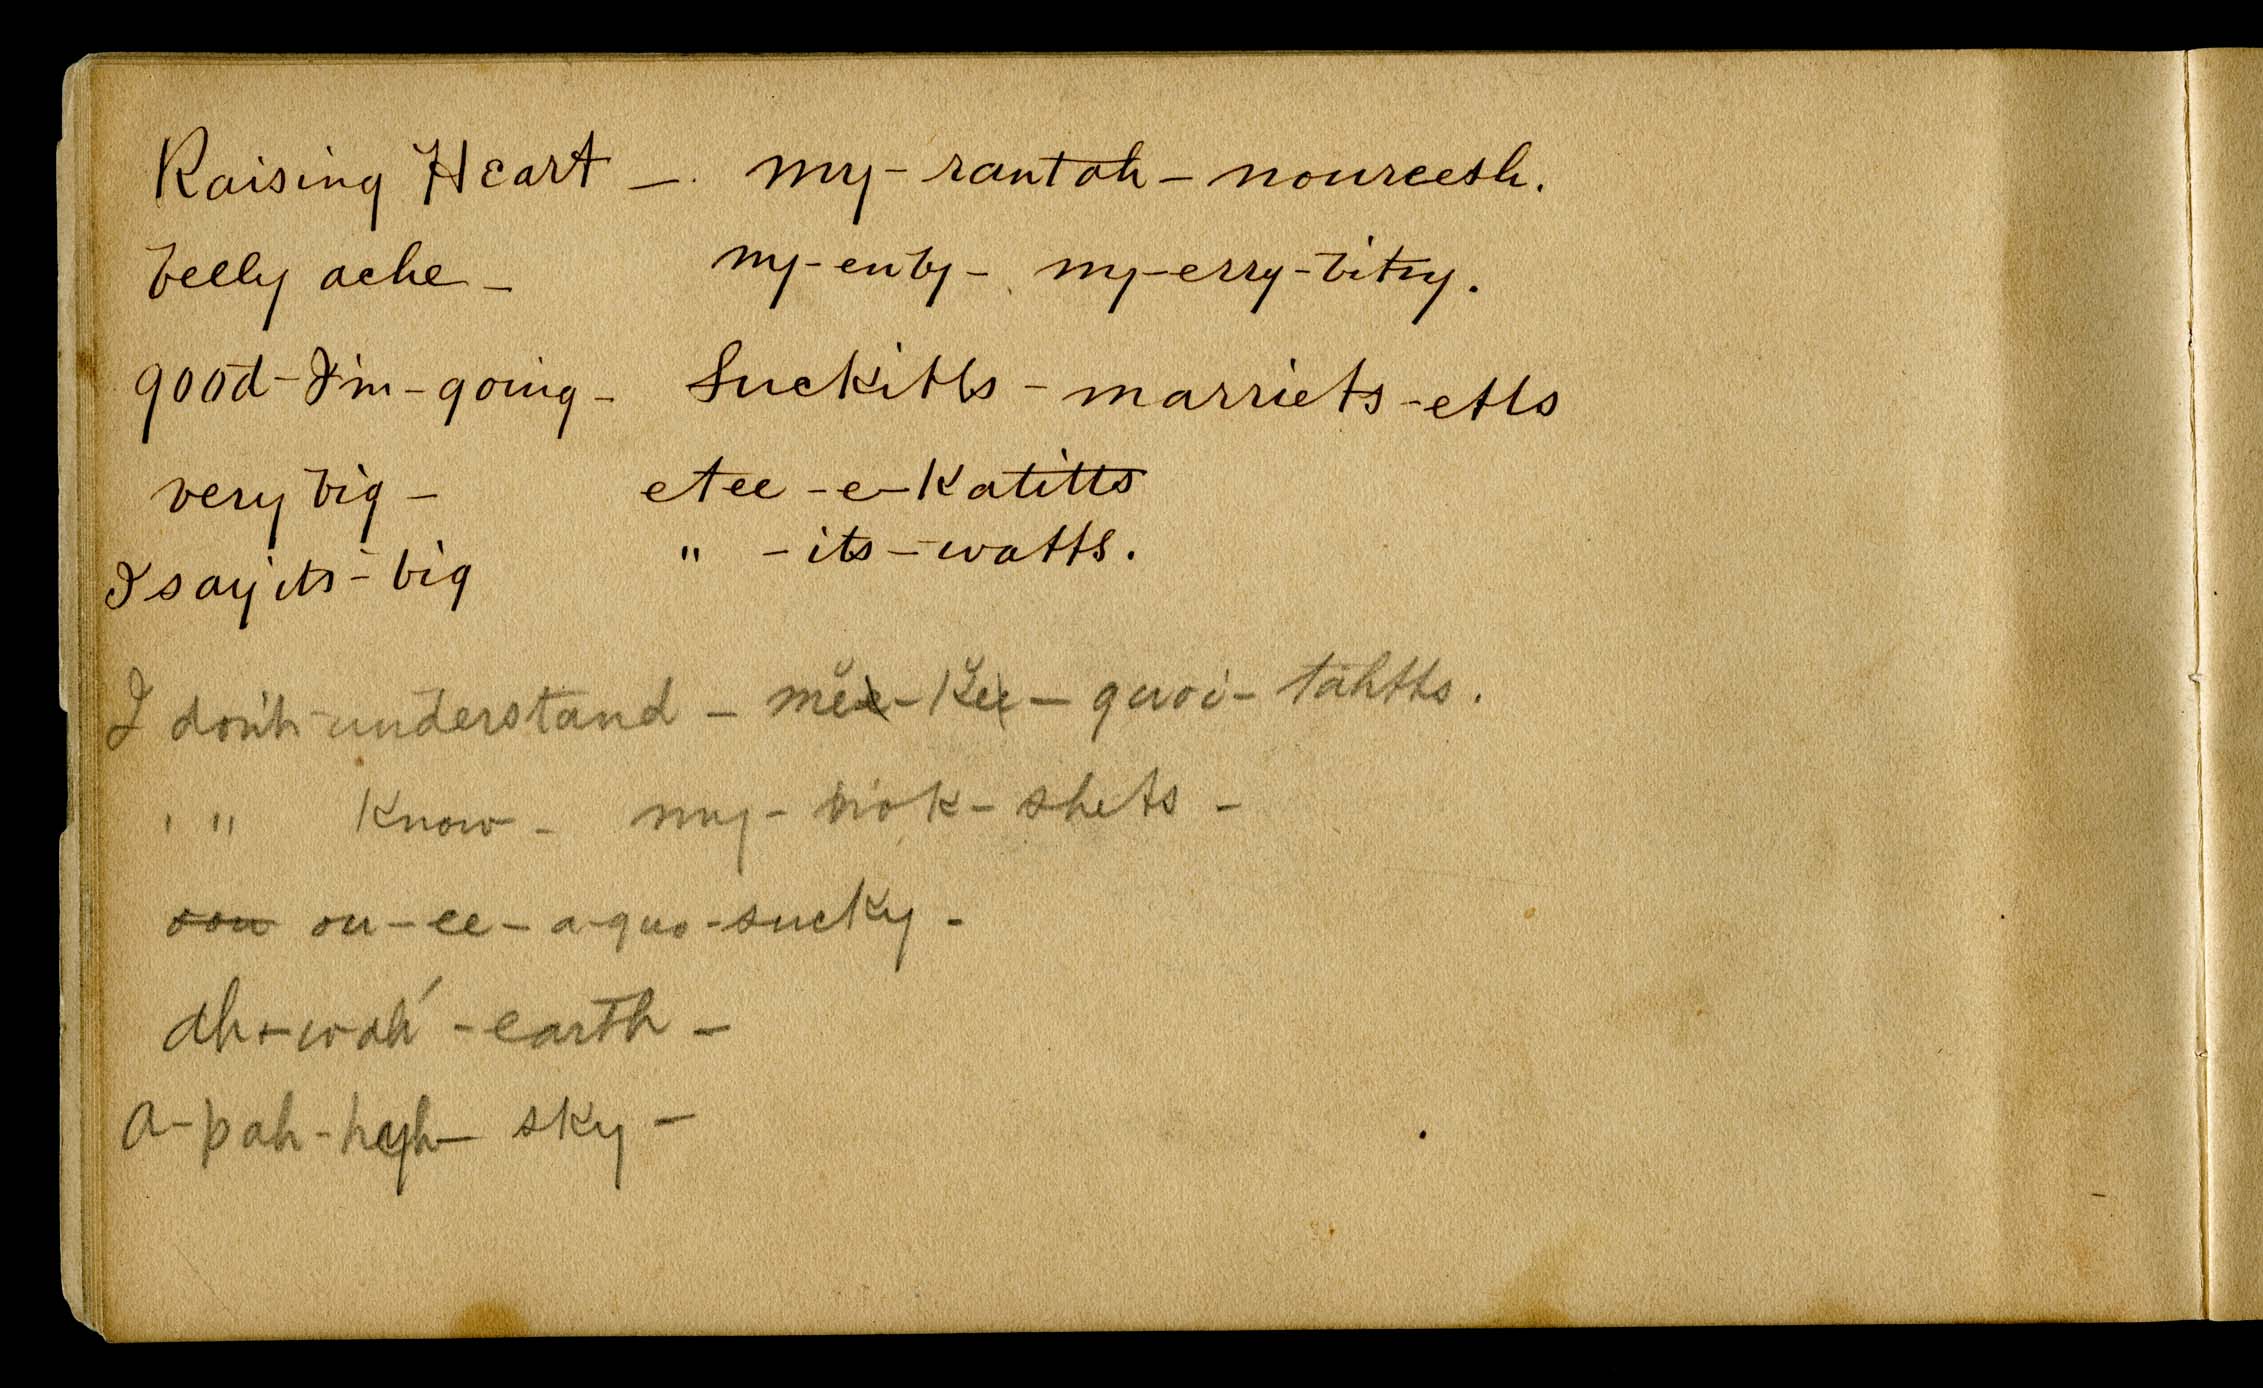 Raising Heart - my-rantah-noureesh.
belly ache - my-enby- my-erry-bitsy.
good-I'm-going- Suckitts - marriets-etts
very big - etee-e-Katitts
I say its-big " -its-watts.
I don't-understand - mĕe-Kĕe - quoi-tahtts.
" " Know - my- -shets -
oou ou-ee-a-quo-sucky -
ah-wah' - earth -
a-pah- sky -